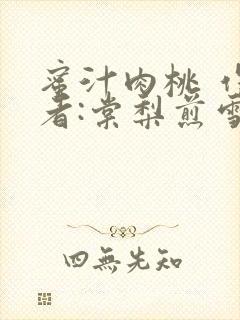 蜜汁肉桃 作
者:棠梨煎雪
四無先知